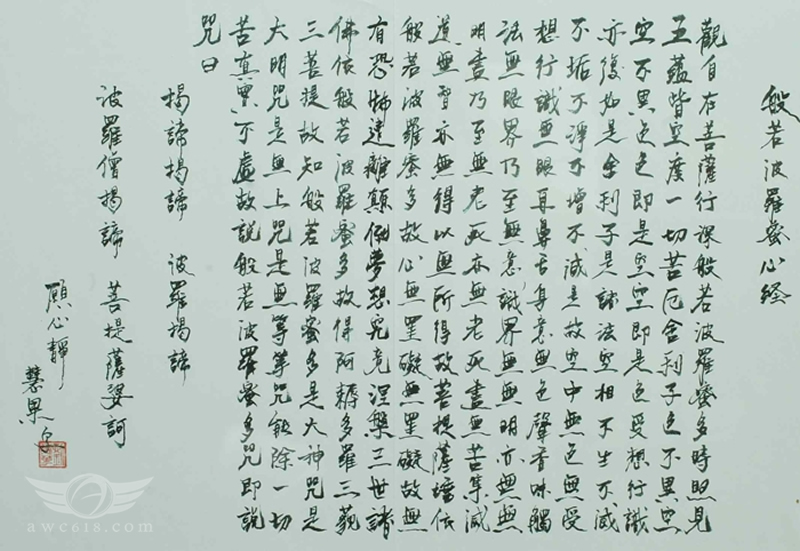 般若波羅蜜心経
觀自在菩薩行深般若波羅蜜多時照見
五蘊皆空度一切苦厄舍利子色不異空
空不異色色即是空空即是色受想行識
亦復如是舍利子是諸法空相不生不滅
不垢不淨不增不減是故空中無色無受
想行識無眼耳鼻舌身意無色聲香味觸
法無眼界乃至無意識界無無明亦無無
明盡乃至無老死亦無老死盡無苦集滅
道無智亦無得以無所得故菩提薩埵依
般若波羅蜜多故心無罣礙無罣礙故無
有恐怖遠離顛倒夢想究竟涅槃三世諸
佛依般若波羅蜜多故得阿耨多羅三藐
三菩提故知般若波羅蜜多是大神咒是
大明咒是無上咒是無等等咒能除一切
苦真實不虛故說般若波羅蜜多咒即說
咒曰
揭諦揭諦 波羅揭諦
波羅僧揭諦 菩提薩婆訶
願心靜
慧果
awc618.com